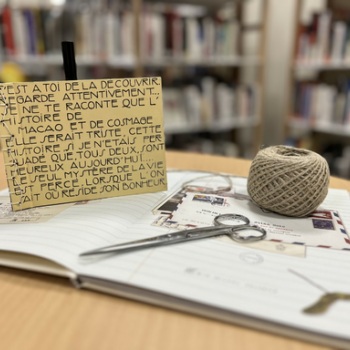 C'EST A TOI DE LA DECOUVRIR
REGARDE ATTENTIVEMENT...
JE NE TE RACONTE QUE L'
HISTOIRE DE
MACAO ET DE COSMAGE
ELLE SERAIT TRISTE CETTE
HISTOIRE SI JE N'ETAIS PER
SUADÉ QUE TOUS DEUX SONT
HEUREUX AUJOURD'HUI...
LE SEUL MYSTÈRE DE LA VIE
EST PERCÉ LORSQUE L'ON
SAIT OU RÉSIDE SON BONHEUR